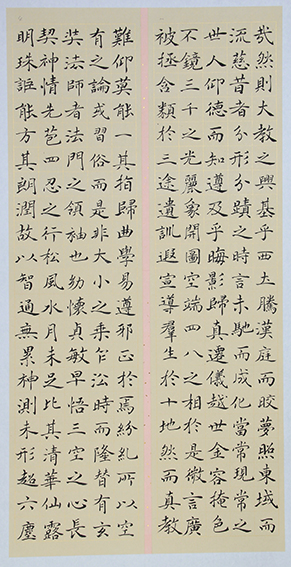 哉然則大教之興基乎西土騰漢庭而皎夢照東域而
流慈昔者分形分蹟之時言未馳而成化當常現常之
世人仰德而知遵及乎晦影歸真遷儀越世金容掩色
不鏡三千之光麗象開圖空端四八之相於是微言廣
被拯含類於三途遺訓遐宣導羣生於十地然而真教
難仰莫能一其指歸曲學易遵邪正於焉紛糺所以空
有之論或習俗而是非大小之乘乍沿時而隆替有玄
奘法師者法門之領袖也幼懷貞敏早悟三空之心長
契神情先苞四忍之行松風水月未足比其清華仙露
明珠詎能方其朗潤故以智通無累神測未形超六塵